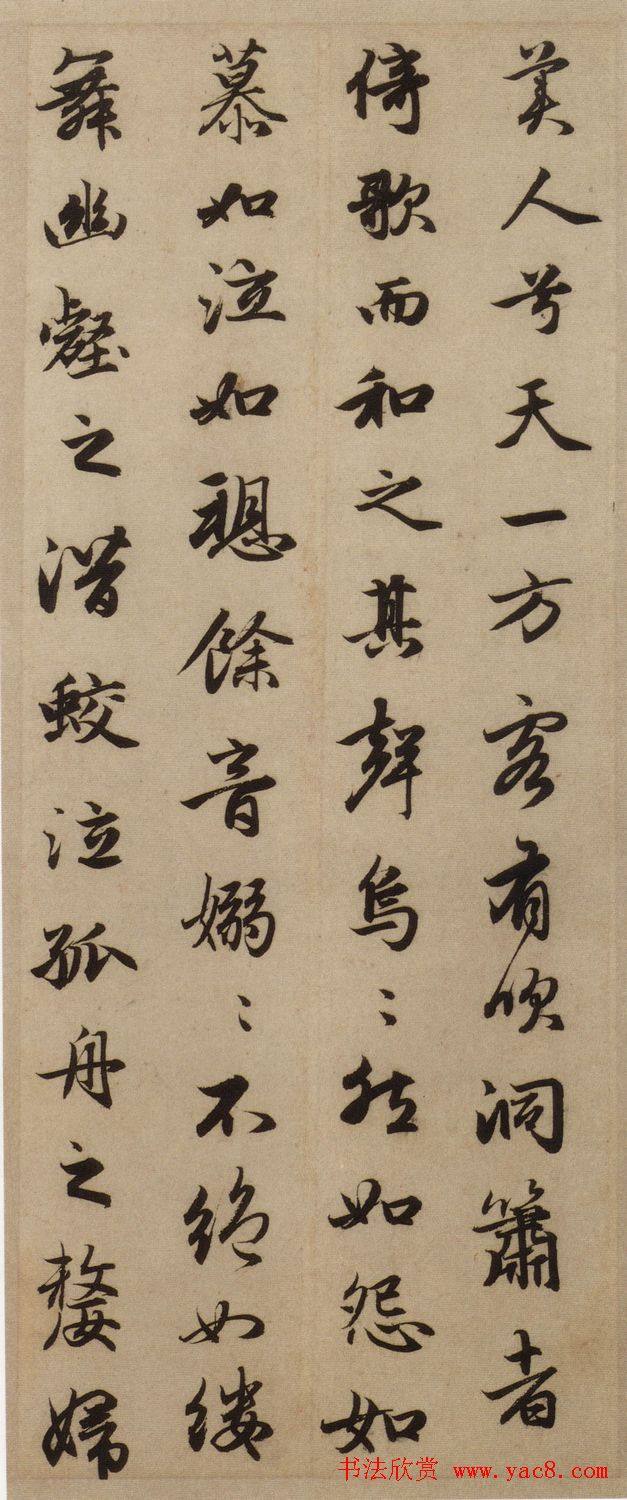 美人兮天一方客有吹洞簫者
倚歌而和之其聲烏〻然如怨如
慕如泣如餘音嫋〻不絕如縷
舞幽壑之潛蛟泣孤舟之嫠婦
书法欣赏 www.yac8.com